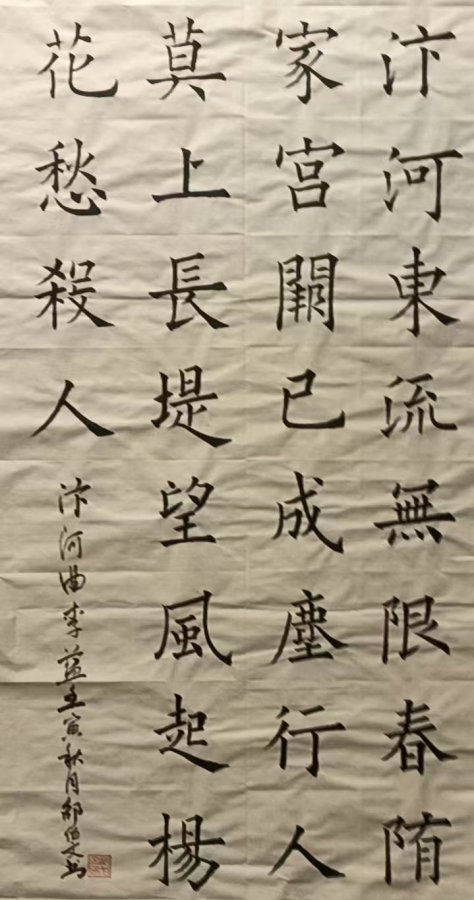 汴河東流無限春隋
家宮闕已成塵行人
莫上長堤望風起楊
花愁殺人
汴河曲李益壬寅秋月